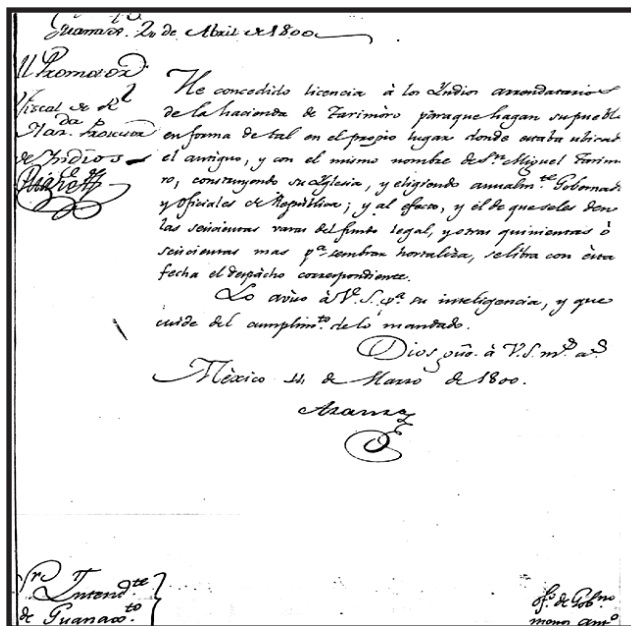 Guanax.to 20 de Abril de 1800
Al Promotor
Fiscal de Rl
Hacda Protector
de Indios
He concedido licencia à los Indios arrendatarios
de la hacienda de Tarimòro para que hagan su pueblo
en forma de tal en el propio lugar donde estaba ubicado
el antiguo, y con el mismo nombre de Sn Miguel Tarimo
ro, construyendo su Iglesia, y eligiendo anualmte Gobernador
y Oficiales de Republica; y al efecto, y èl de que seles den
las seiscientas varas del fundo legal, y otras quinientas ò
seiscientas mas pa sembrar hortaliza, se libra con esta
fecha el despacho correspondiente.
Lo aviso à V. S. pa su inteligencia, y que
cuide del cumplimto de lo mandado.
Dios gũe. à V. S. ms as
Mèxico 11 de Marzo de 1800.
Azanza
Sr Intendte
de Guanaxto
ofo de Gobno